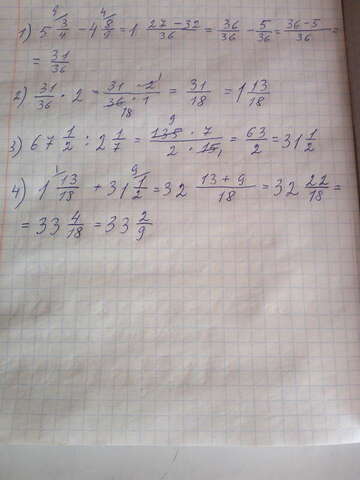 1) 5 3/4 - 4 8/9 = 1 27-32/36 = 36/36 - 5/36 = 36-5/36 =
= 31/36
2) 31/36 · 2 = 31 · 2/36 · 1 = 31/18 = 1 13/18
3) 67 1/2 : 2 1/7 = 135 · 7/2 · 15 = 63/2 = 31 1/2
4) 1 13/18 + 31 1/2 = 32 13+9/18 = 32 22/18 =
= 33 4/18 = 33 2/9